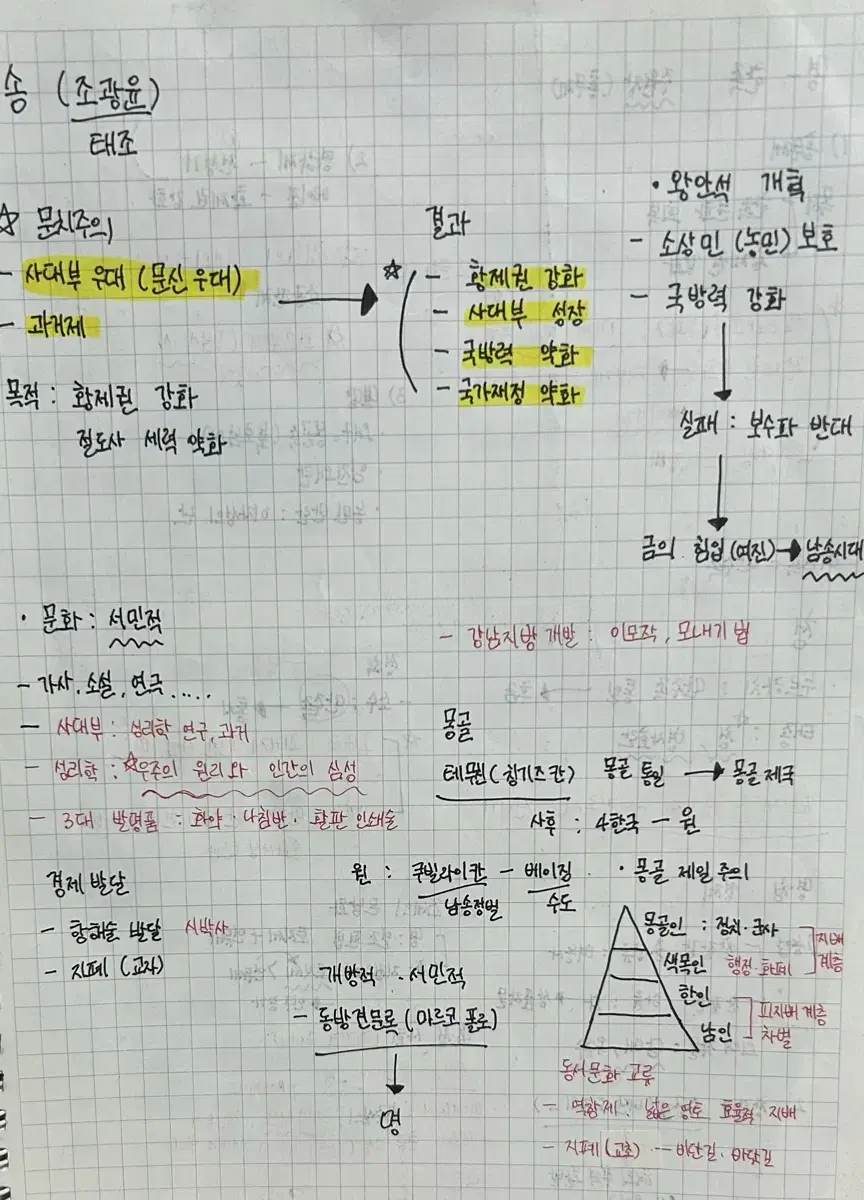 송 (조광윤)
태조
☆ 문치주의
- 사대부 우대 (문신 우대)
- 과거제
목적 : 황제권 강화
절도사 세력 약화
결과
☆ - 황제권 강화
- 사대부 성장
- 국방력 약화
- 국가재정 약화
· 왕안석 개혁
- 소상민 (농민) 보호
- 국방력 강화
실패 : 보수파 반대
금의 침입 (여진) → 남송시대
· 문화 : 서민적
- 가사, 소설, 연극 .....
- 사대부 : 성리학 연구, 과거
- 성리학 : ☆우주의 원리와 인간의 심성
- 3대 발명품 : 화약 · 나침반 · 활판 인쇄술
경제 발달
- 항해술 발달 시박사
- 지폐 (교자)
- 강남지방 개발 : 이모작, 모내기법
몽골
테무친 (칭기즈칸) 몽골 통일 → 몽골 제국
사후 : 4한국 - 원
원 : 쿠빌라이칸 - 베이징
남송정벌 수도
개방적 · 서민적
- 동방견문록 (마르코 폴로)
명
· 몽골 제일 주의
몽골인 : 정치 · 군사
색목인 행정 · 화폐
지배 계층
한인
남인
피지배 계층
차별
동서문화 교류
- 역참제 : 넓은 영토 효율적 지배
- 지폐 (교초) -- 비단길 · 바닷길